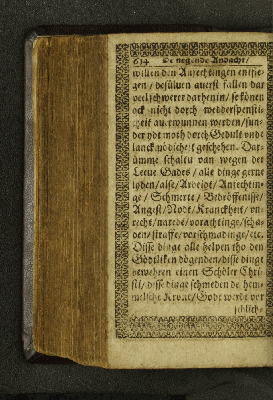 634 De negende Andacht/
willen den Anfechtingen entfle-
gen/ desüluen auerst fallen dar
veel schwerer darhenin/ se können
ock nicht dorch wedderspensti-
cheit auerwunnen werden/ sun-
der ydt moth dorch Gedult vnde
lanckmödicheit geschehen. Dar-
ümme schaltu van wegen der
Leeue Gades/ alle dinge gerne
lyden/ alse/ Arbeidt/ Anfechtin-
ge/ Schmerte/ Bedröffenisse/
Angest/ Nodt/ Kranckheit/ vn-
recht/ narede/ vorachtinge/ scha-
den/ straffe/ vorschmadinge/ etc.
Disse dinge alle helpen tho den
Gödtliken dögenden/ disse dinge
bewehren einen Schöler Chri-
sti/ disse dinge schmeden de hem-
melische Krone/ Godt werdt vor